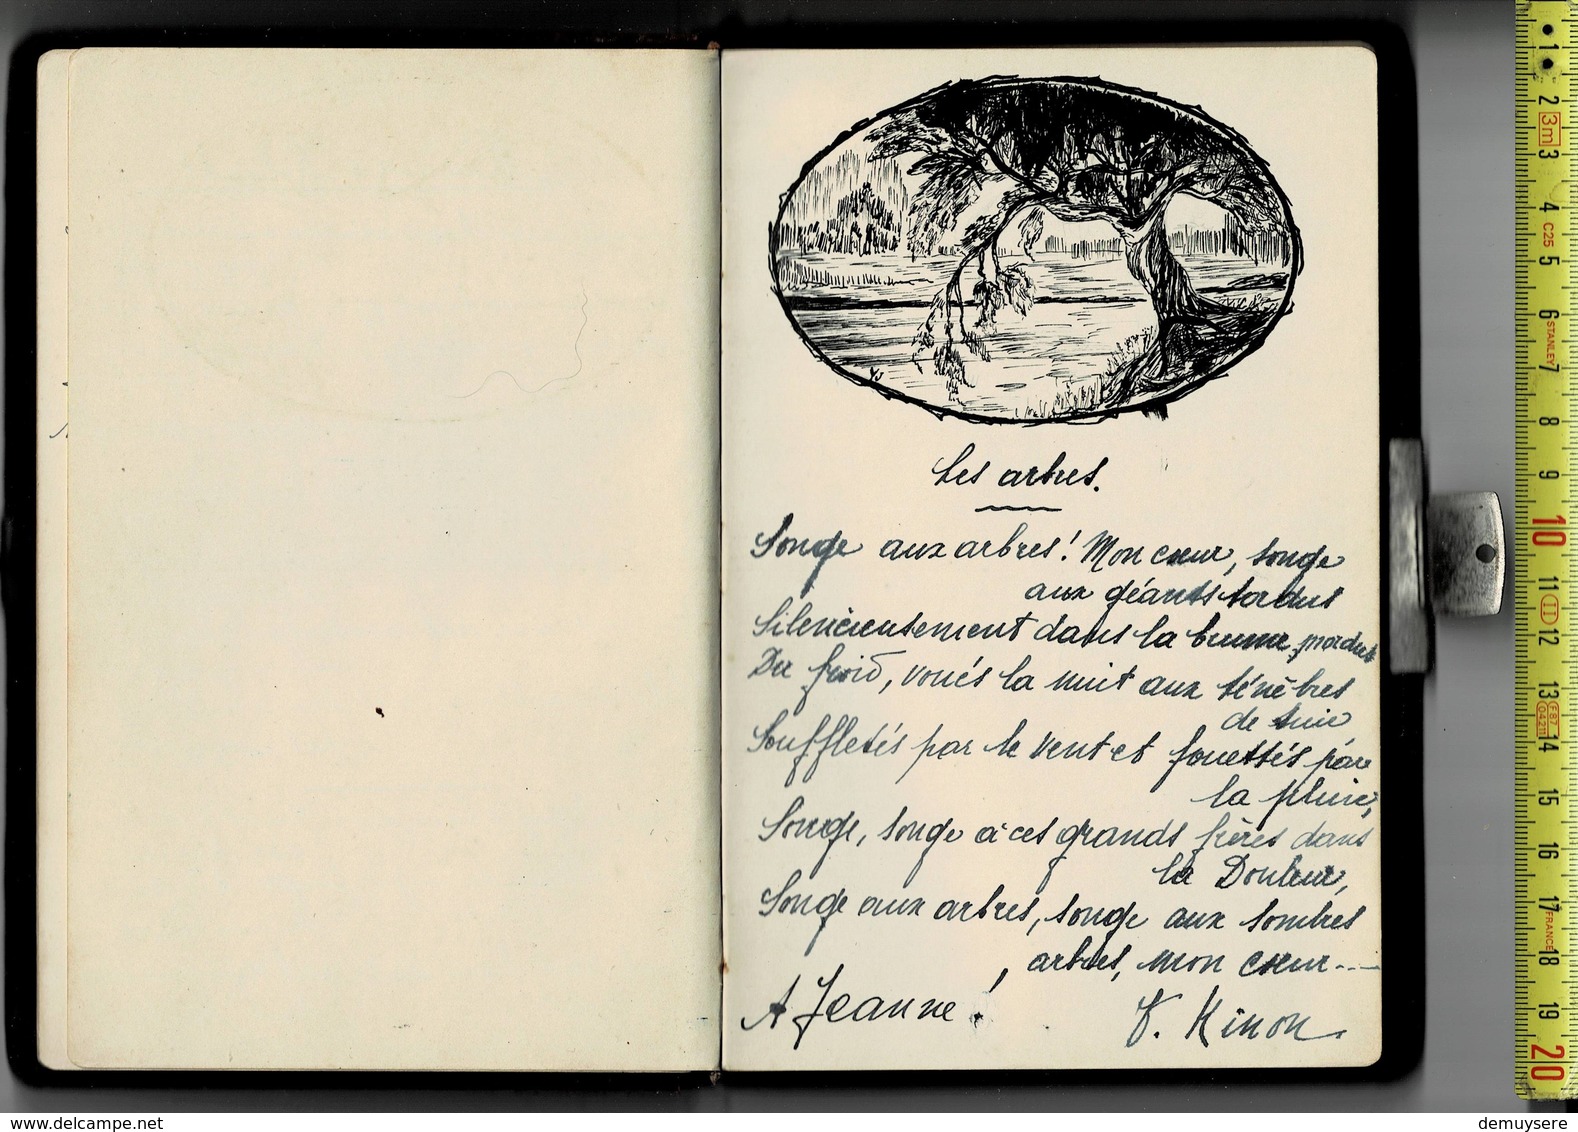 Les arbres.
Songe aux arbres! Mon cœur, songe
aux géants tordus
Silencieusement dans la brume, mordus
Du froid, voués la nuit aux ténèbres
de suie
Souffletés par le vent et fouettés par
la pluie,
Songe, songe à ces grands frères dans
la Douleur,
Songe aux arbres, songe aux sombres
arbres, mon cœur...
A Jeanne!
V. Kinon
1
2
3m
3
4
C25
5
6
STANLEY
7
8
9
10
11
II
12
13
F87
0421
14
15
16
17
FRANCE
18
19
20
delcampe.net
demuysere